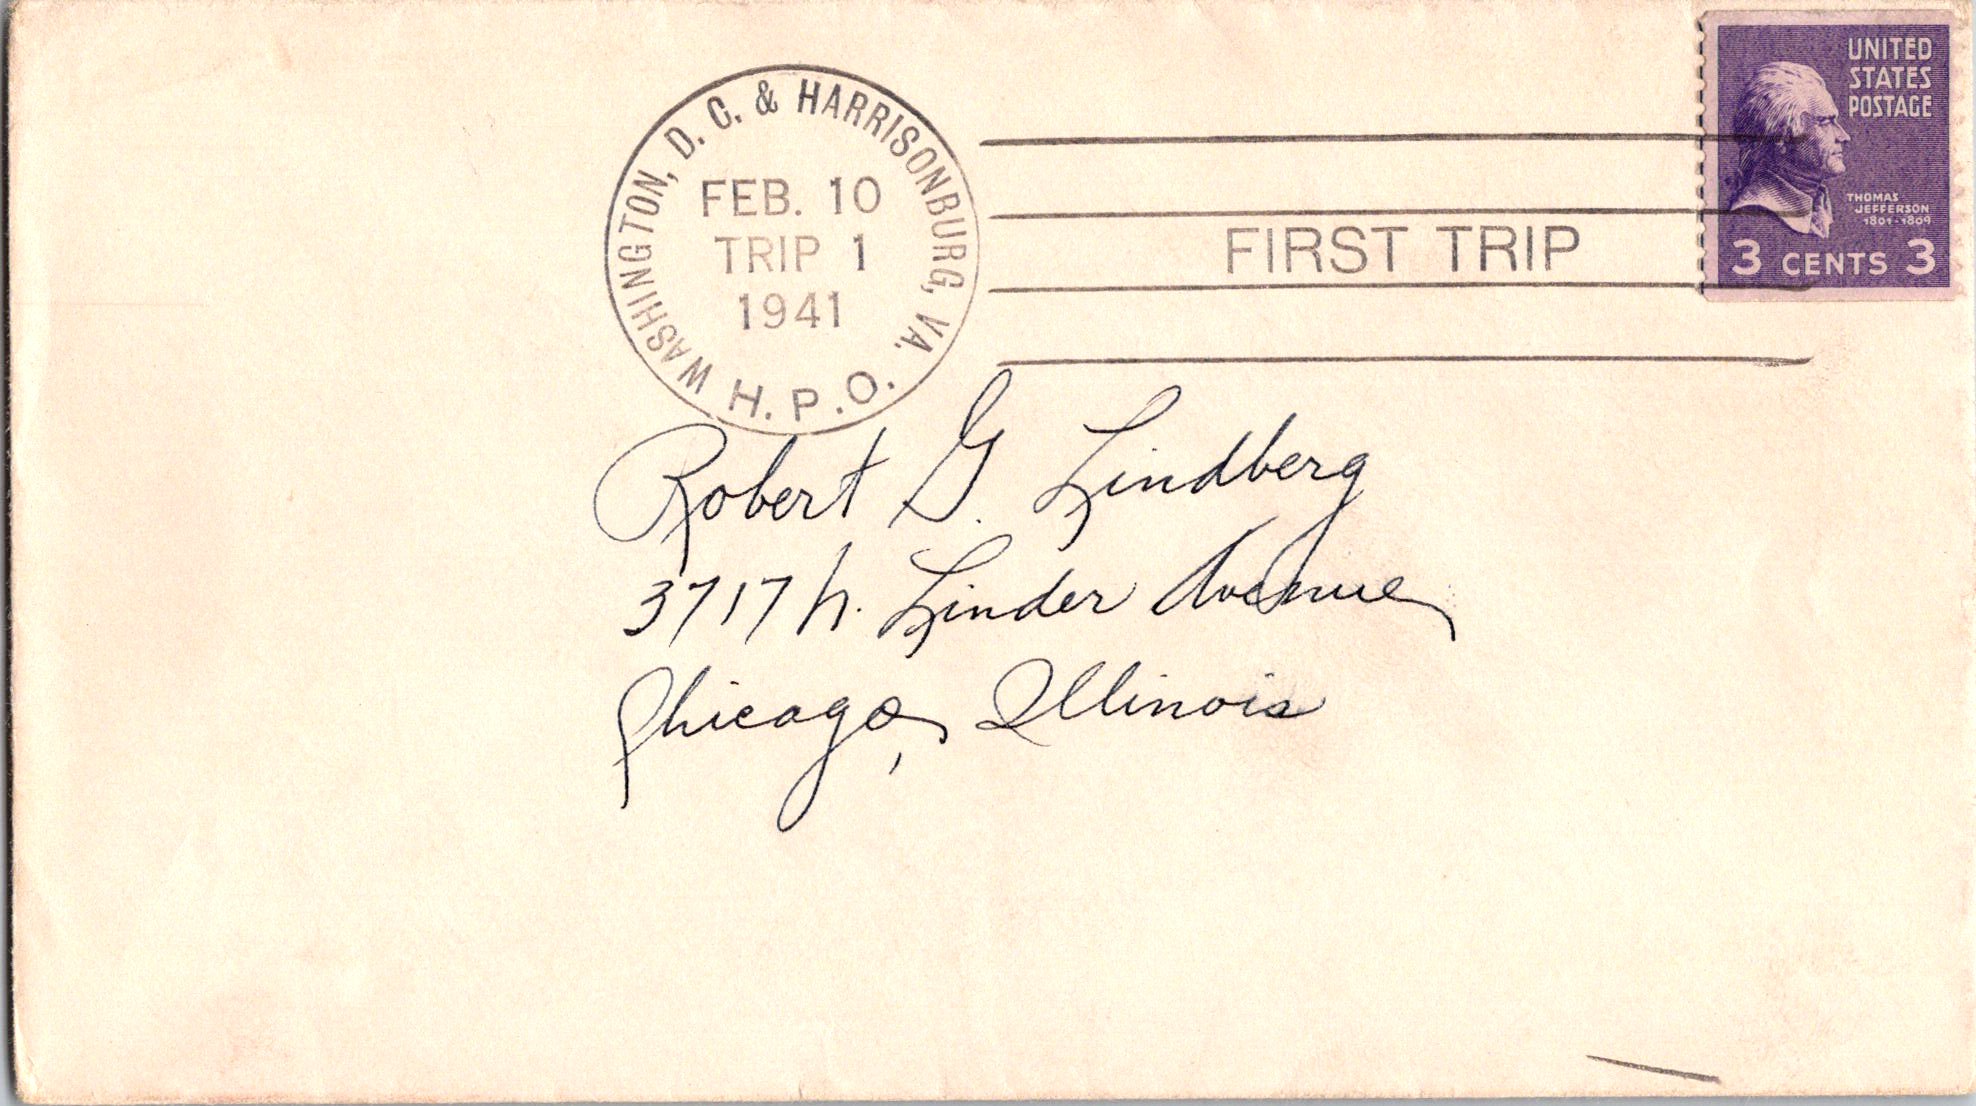 WASHINGTON, D. C. & HARRISONBURG, VA.
FEB. 10
TRIP 1
1941
H. P. O.
FIRST TRIP
UNITED
STATES
POSTAGE
THOMAS
JEFFERSON
1801-1809
3 CENTS 3
Robert G. Lindberg
3717 N. Linder Avenue
Chicago, Illinois